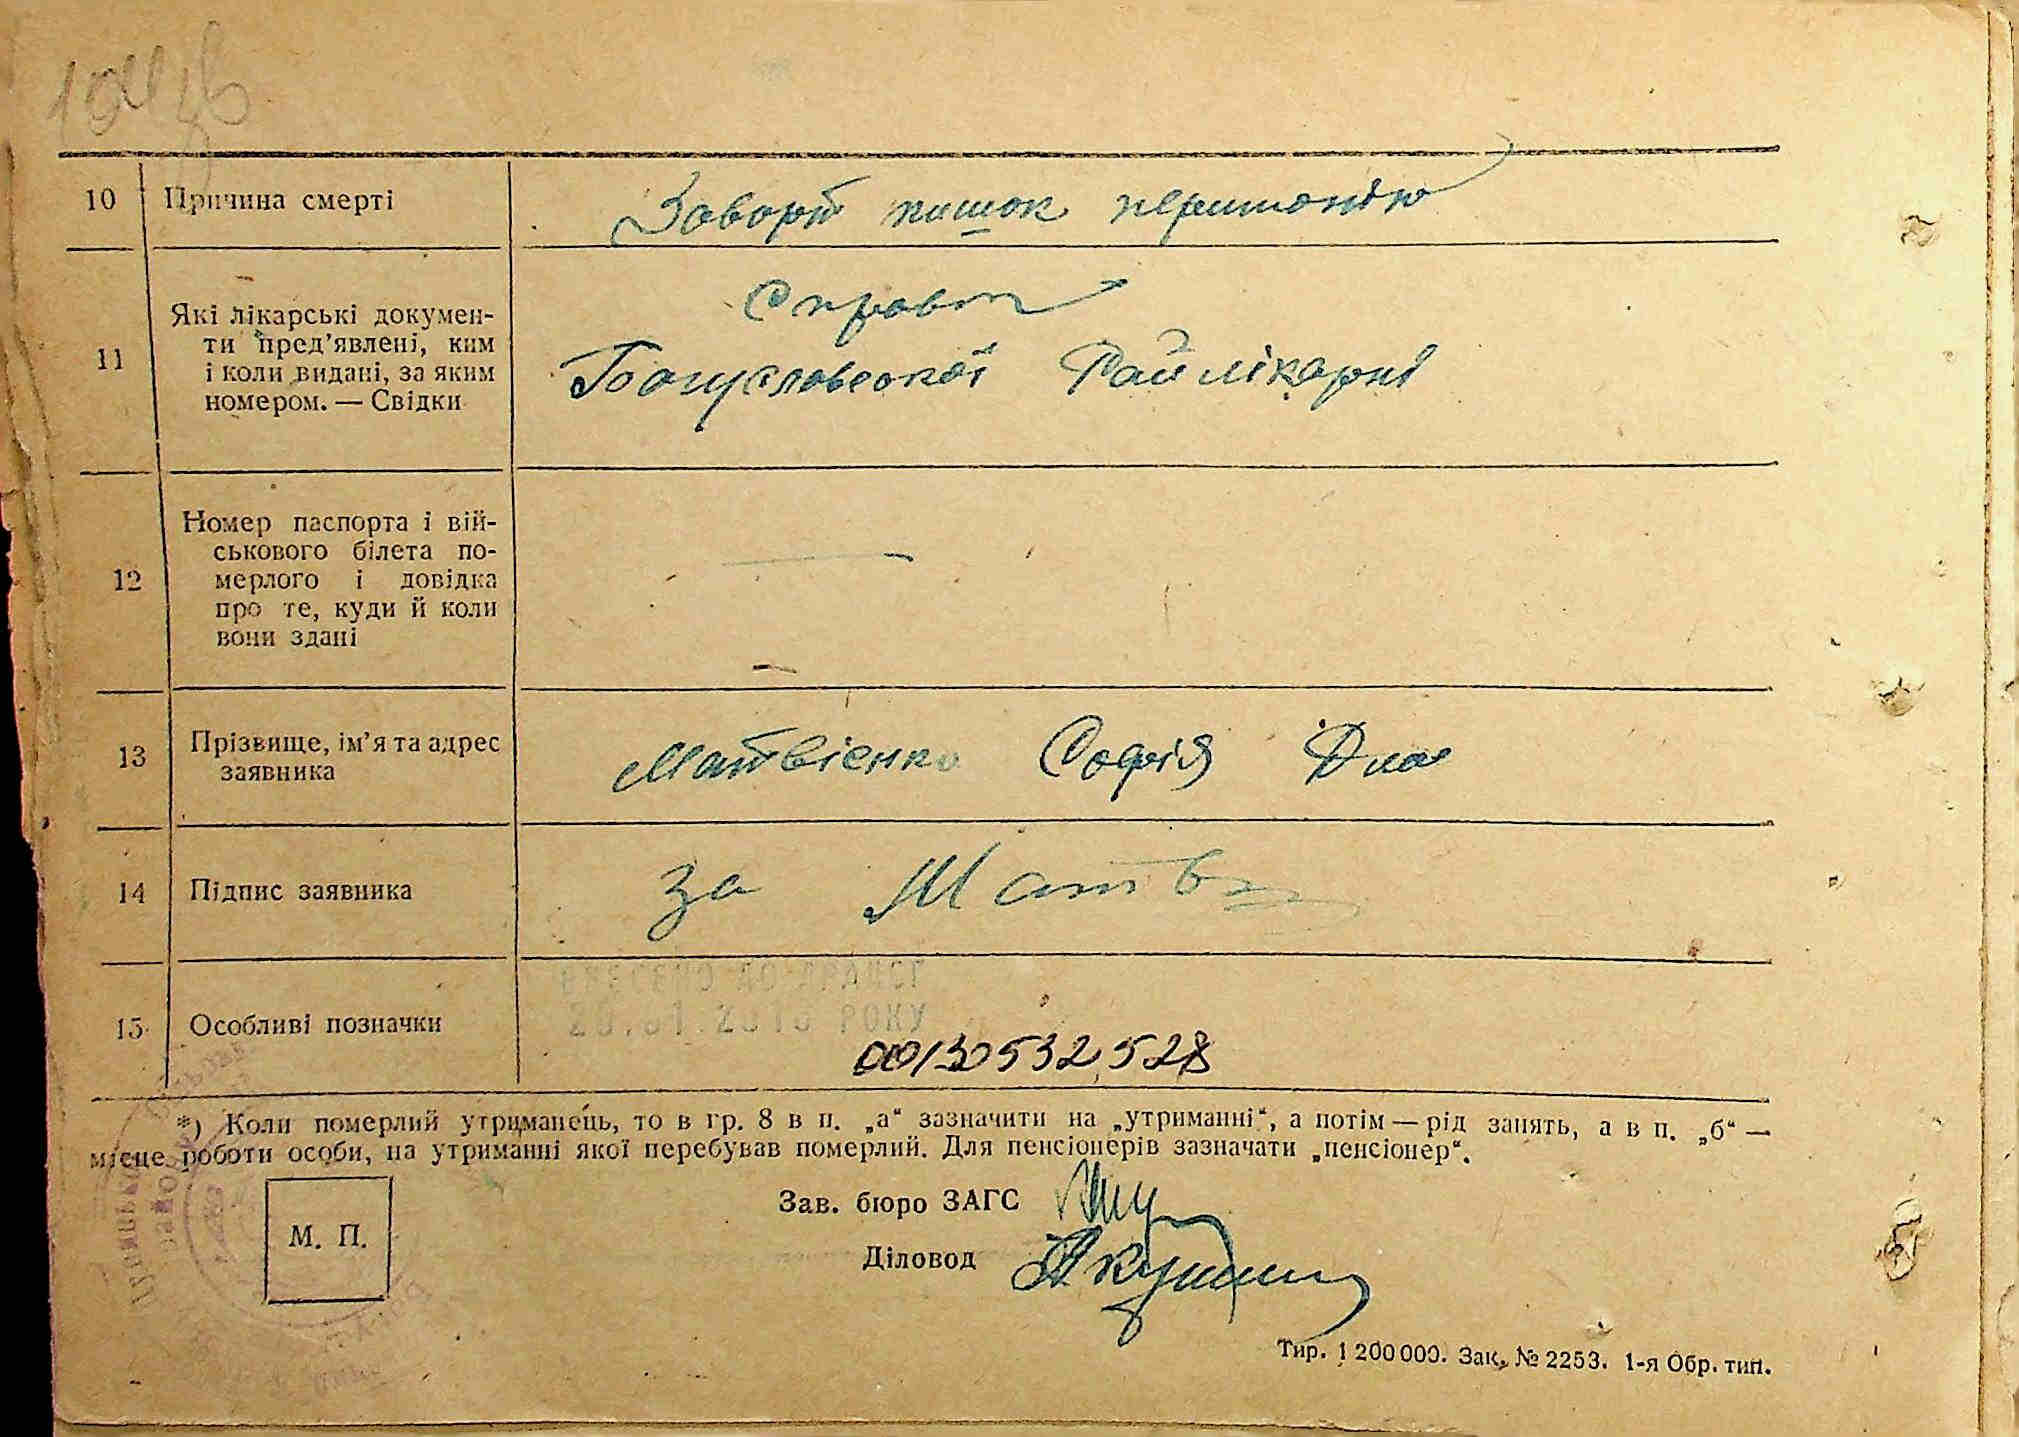 10 Причина смерті Заворот кишок перитонію
11 Які лікарські докумен-
ти пред’явлені, ким
і коли видані, за яким
номером. — Свідки
Справк
Богуславської Райлікарні
12 Номер паспорта і вій-
ськового білета по-
мерлого і довідка
про те, куди й коли
вони здані
—
13 Прізвище, ім’я та адрес
заявника
Матвієнко Софія
14 Підпис заявника За Матв
15 Особливі позначки
ВНЕСЕНО ДО ДРАЦСГ
РОКУ
00130532528
*) Коли померлий утриманець, то в гр. 8 в п. „а“ зазначити на „утриманні“, а потім — рід занять, а в п. „б“ —
місце роботи особи, на утриманні якої перебував померлий. Для пенсіонерів зазначати „пенсіонер“.
М. П.
Зав. бюро ЗАГС
Діловод
Тир. 1 200 000. Зак. № 2253. 1-я Обр. тип.